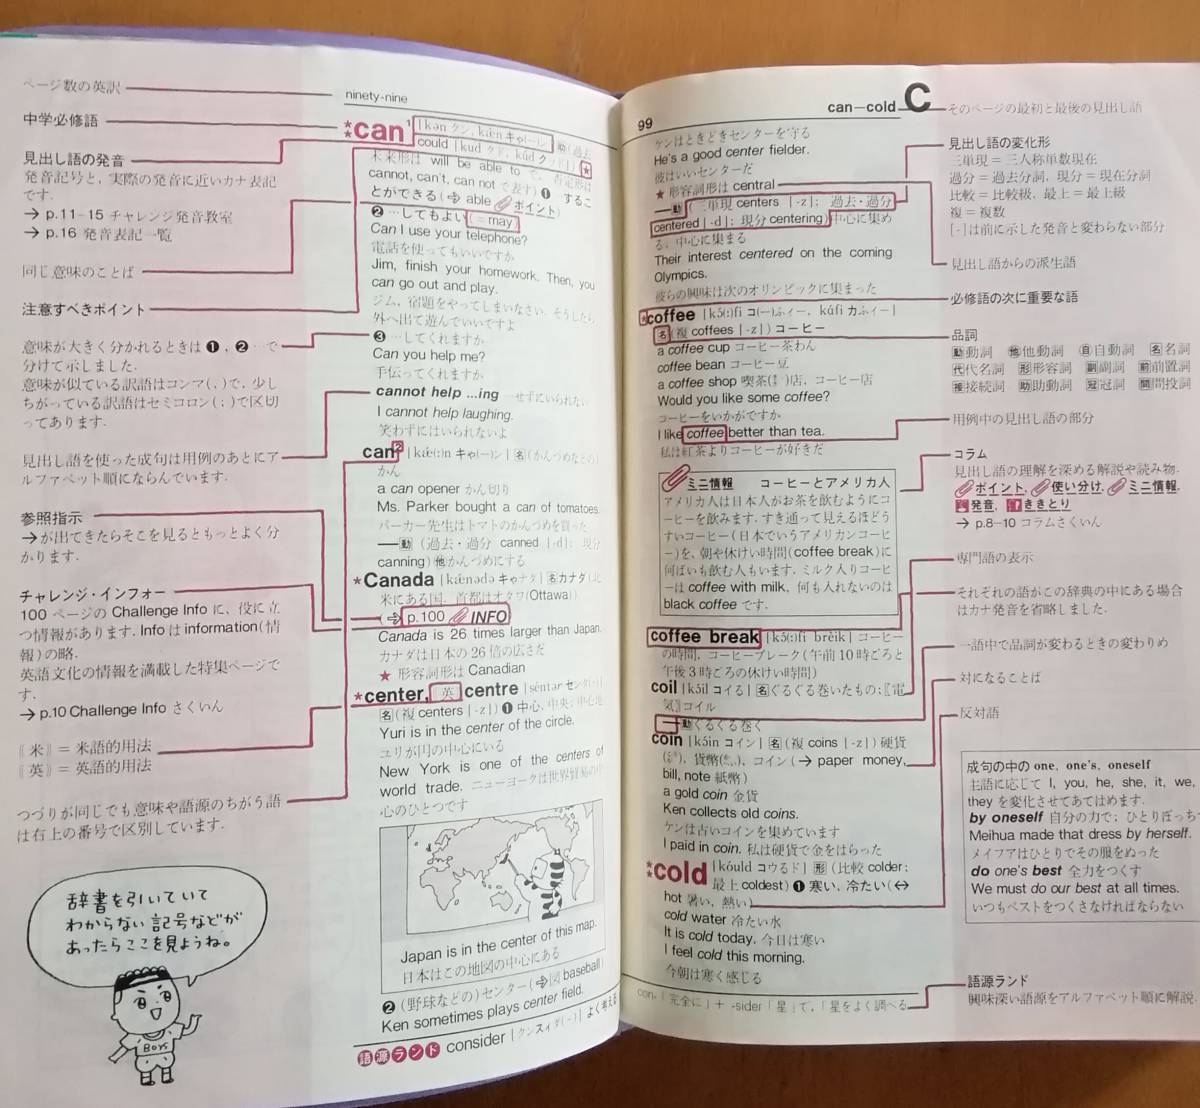 ページ数の英訳
中学必修語
見出し語の発音
発音記号と, 実際の発音に近いカナ表記
です.
→ p.11-15 チャレンジ発音教室
→ p.16 発音表記一覧
同じ意味のことば
注意すべきポイント
意味が大きく分かれるときは❶, ❷…で
分けて示しました.
意味が似ている訳語はコンマ(,)で, 少し
ちがっている訳語はセミコロン(;)で区切
ってあります.
見出し語を使った成句は用例のあとにア
ルファベット順にならんでいます.
参照指示
→が出てきたらそこを見るともっとよく分
かります.
チャレンジ・インフォー
100 ページの Challenge Info に, 役に立
つ情報があります. Info は information(情
報)の略.
英語文化の情報を満載した特集ページで
す.
→ p.10 Challenge Info さくいん
《米》= 米語的用法
《英》= 英語的用法
つづりが同じでも意味や語源のちがう語
は右上の番号で区別しています.
辞書を引いていて
わからない記号などが
あったらここを見ようね。
BOYS
ninety-nine
**can¹ |kən クン, kǽn キャ(ー)ン| 助(過去
could |kud クド, kúd クッド|; ★
未来形は will be able to で, 否定形は
cannot, can't, can not で表す) ❶ …するこ
とができる (⇨ able ポイント)
❷ …してもよい (= may)
Can I use your telephone?
電話を使ってもいいですか
Jim, finish your homework. Then, you
can go out and play.
ジム, 宿題をやってしまいなさい. そうしたら
外へ出て遊んでいいですよ
❸ …してくれますか
Can you help me?
手伝ってくれますか
cannot help ...ing …せずにいられない
I cannot help laughing.
笑わずにはいられないよ
can² |kǽ(:)n キャ(ー)ン| 名 (かんづめなどの)
かん
a can opener かん切り
Ms. Parker bought a can of tomatoes.
パーカー先生はトマトのかんづめを買った
— 動 (過去・過分 canned |-d|; 現分
canning) 他 かんづめにする
*Canada |kǽnədə キャナダ| 名 カナダ (北
米にある国. 首都はオタワ(Ottawa))
(⇨ p.100 INFO)
Canada is 26 times larger than Japan.
カナダは日本の26倍の広さだ
★ 形容詞形は Canadian
*center, 《英》centre |séntər センタ(ー)|
名 (複 centers |-z|) ❶ 中心, 中央; 中心地
Yuri is in the center of the circle.
ユリが円の中心にいる
New York is one of the centers of
world trade. ニューヨークは世界貿易の中
心のひとつです
Japan is in the center of this map.
日本はこの地図の中心にある
❷ (野球などの)センター (⇨図 baseball)
Ken sometimes plays center field.
語源ランド consider |クンスィダ(ー)| よく考える
99
can—cold C
ケンはときどきセンターを守る
He's a good center fielder.
彼はいいセンターだ
★ 形容詞形は central
— 動 (三単現 centers |-z|; 過去・過分
centered |-d|; 現分 centering) 中心に集め
る, 中心に集まる
Their interest centered on the coming
Olympics.
彼らの興味は次のオリンピックに集まった
*coffee |kɔ́(:)fi コ(ー)ふィー, káfi カふィー|
名 (複 coffees |-z|) コーヒー
a coffee cup コーヒー茶わん
coffee bean コーヒー豆
a coffee shop 喫茶店, コーヒー店
Would you like some coffee?
コーヒーをいかがですか
I like coffee better than tea.
私は紅茶よりコーヒーが好きだ
ミニ情報 コーヒーとアメリカ人
アメリカ人は日本人がお茶を飲むようにコ
ーヒーを飲みます. すき通って見えるほどう
すいコーヒー(日本でいうアメリカンコーヒ
ー)を, 朝や休けい時間(coffee break)に
何ばいも飲む人もいます. ミルク入りコーヒ
ーは coffee with milk, 何も入れないのは
black coffee です.
coffee break |kɔ́(:)fi brèik| コーヒー
の時間, コーヒーブレーク(午前10時ごろと
午後3時ごろの休けい時間)
coil |kɔ́il コイる| 名 ぐるぐる巻いたもの;《電
気》コイル
— 動 ぐるぐる巻く
coin |kɔ́in コイン| 名 (複 coins |-z|) 硬貨
, 貨幣, コイン (→ paper money,
bill, note 紙幣)
a gold coin 金貨
Ken collects old coins.
ケンは古いコインを集めています
I paid in coin. 私は硬貨で金をはらった
**cold |kóuld コウるド| 形 (比較 colder;
最上 coldest) ❶ 寒い, 冷たい (↔
hot 暑い, 熱い)
cold water 冷たい水
It is cold today. 今日は寒い
I feel cold this morning.
今朝は寒く感じる
con-「完全に」+ -sider「星」で,「星をよく調べる
そのページの最初と最後の見出し語
見出し語の変化形
三単現 = 三人称単数現在
過分 = 過去分詞, 現分 = 現在分詞
比較 = 比較級, 最上 = 最上級
複 = 複数
[-]は前に示した発音と変わらない部分
見出し語からの派生語
必修語の次に重要な語
品詞
動動詞 他他動詞 自自動詞 名名詞
代代名詞 形形容詞 副副詞 前前置詞
接接続詞 助助動詞 冠冠詞 間間投詞
用例中の見出し語の部分
コラム
見出し語の理解を深める解説や読み物.
ポイント, 使い分け, ミニ情報,
発音, ききとり
→ p.8-10 コラムさくいん
専門語の表示
それぞれの語がこの辞典の中にある場合
はカナ発音を省略しました.
一語中で品詞が変わるときの変わりめ
対になることば
反対語
成句の中の one, one's, oneself
主語に応じて I, you, he, she, it, we,
they を変化させてあてはめます.
by oneself 自分の力で; ひとりぼっちで
Meihua made that dress by herself.
メイフアはひとりでその服をぬった
do one's best 全力をつくす
We must do our best at all times.
いつもベストをつくさなければならない
語源ランド
興味深い語源をアルファベット順に解説.